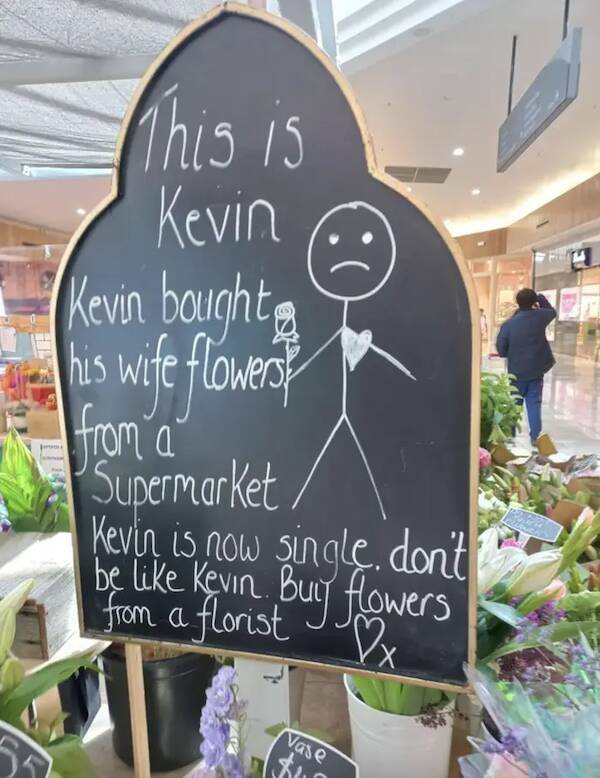 This is
Kevin
Kevin bought
his wife flowers
from a
Supermarket
Kevin is now single. don't
be like Kevin. Buy flowers
from a florist
x
Vase
55